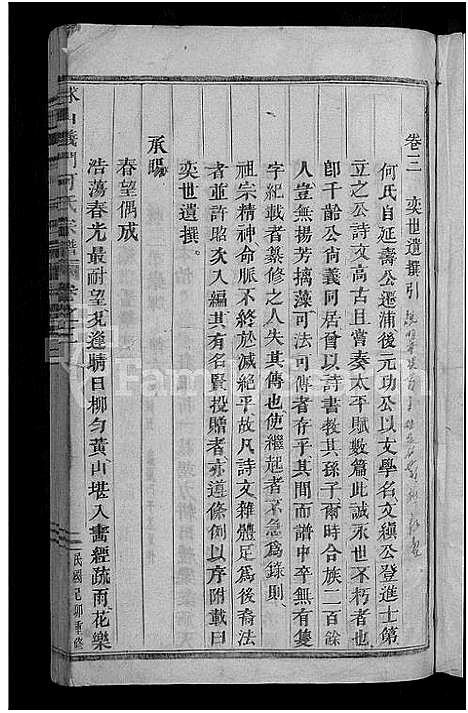 卷三　奕世遺撰引
何氏自延壽公遷浦後元功公以文學名文縝公登進士第
立之公詩文高古且嘗奏太平賦數篇此誠永世不朽者也
卽千齡公尙義同居曾以詩書教其孫子爾時合族二百餘
人豈無揚芳摛藻可法可傳者存乎其間而譜中卒無有隻
字紀載者纂修之人失其傳也使繼起者不急爲錄則
祖宗精神命脈不終於滅絕乎故凡詩文雜體足爲後裔法
者並許照次入編其有名賢投贈者亦遵條例以序附載曰
奕世遺撰
承暘
春望偶成
浩蕩春光最耐望况逢晴日柳勻黃山堪入畫經疏雨花樂
義門何氏宗譜
民國己卯重修
FamilySearch